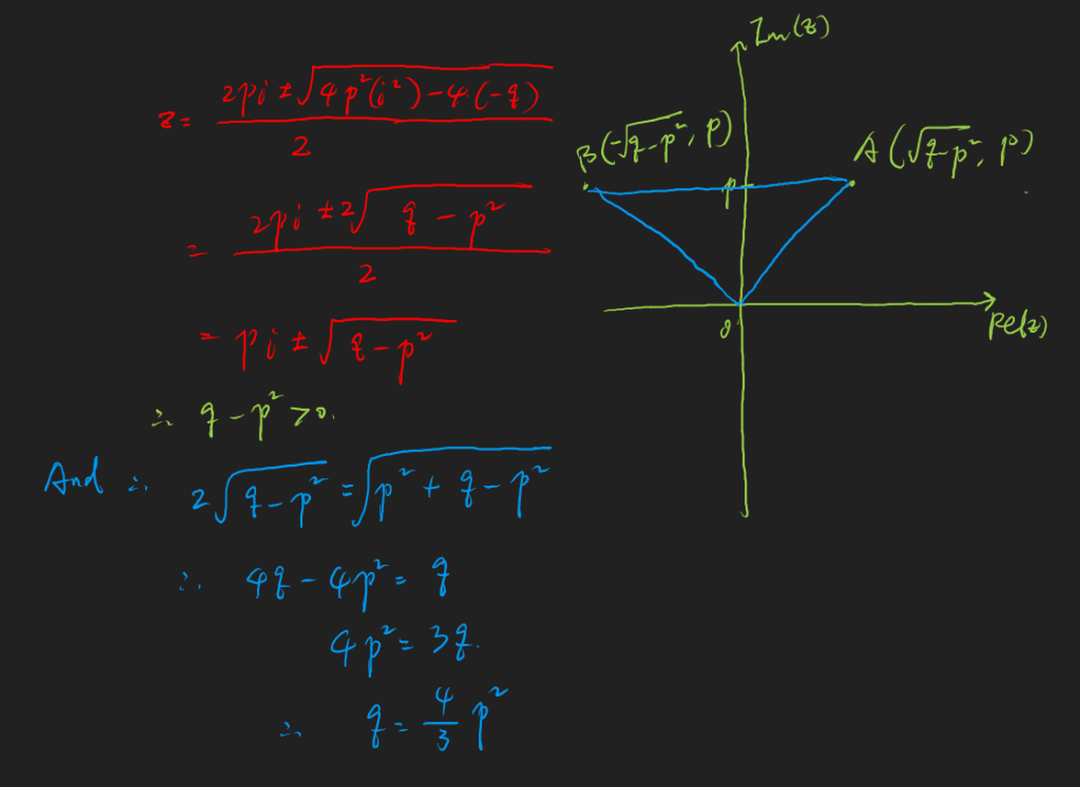 z = (2pi ± √(4p²(i²) − 4·(−q))) / 2
= (2pi ± 2√(q − p²)) / 2
= pi ± √(q − p²)
∴ q − p² > 0.
And ∴ 2√(q − p²) = √(p² + q − p²)
∴ 4q − 4p² = q
4p² = 3q.
∴ q = 4/3 p²
Im(z)
B(−√(q − p²), p)
A(√(q − p²), p)
p
0
Re(z)